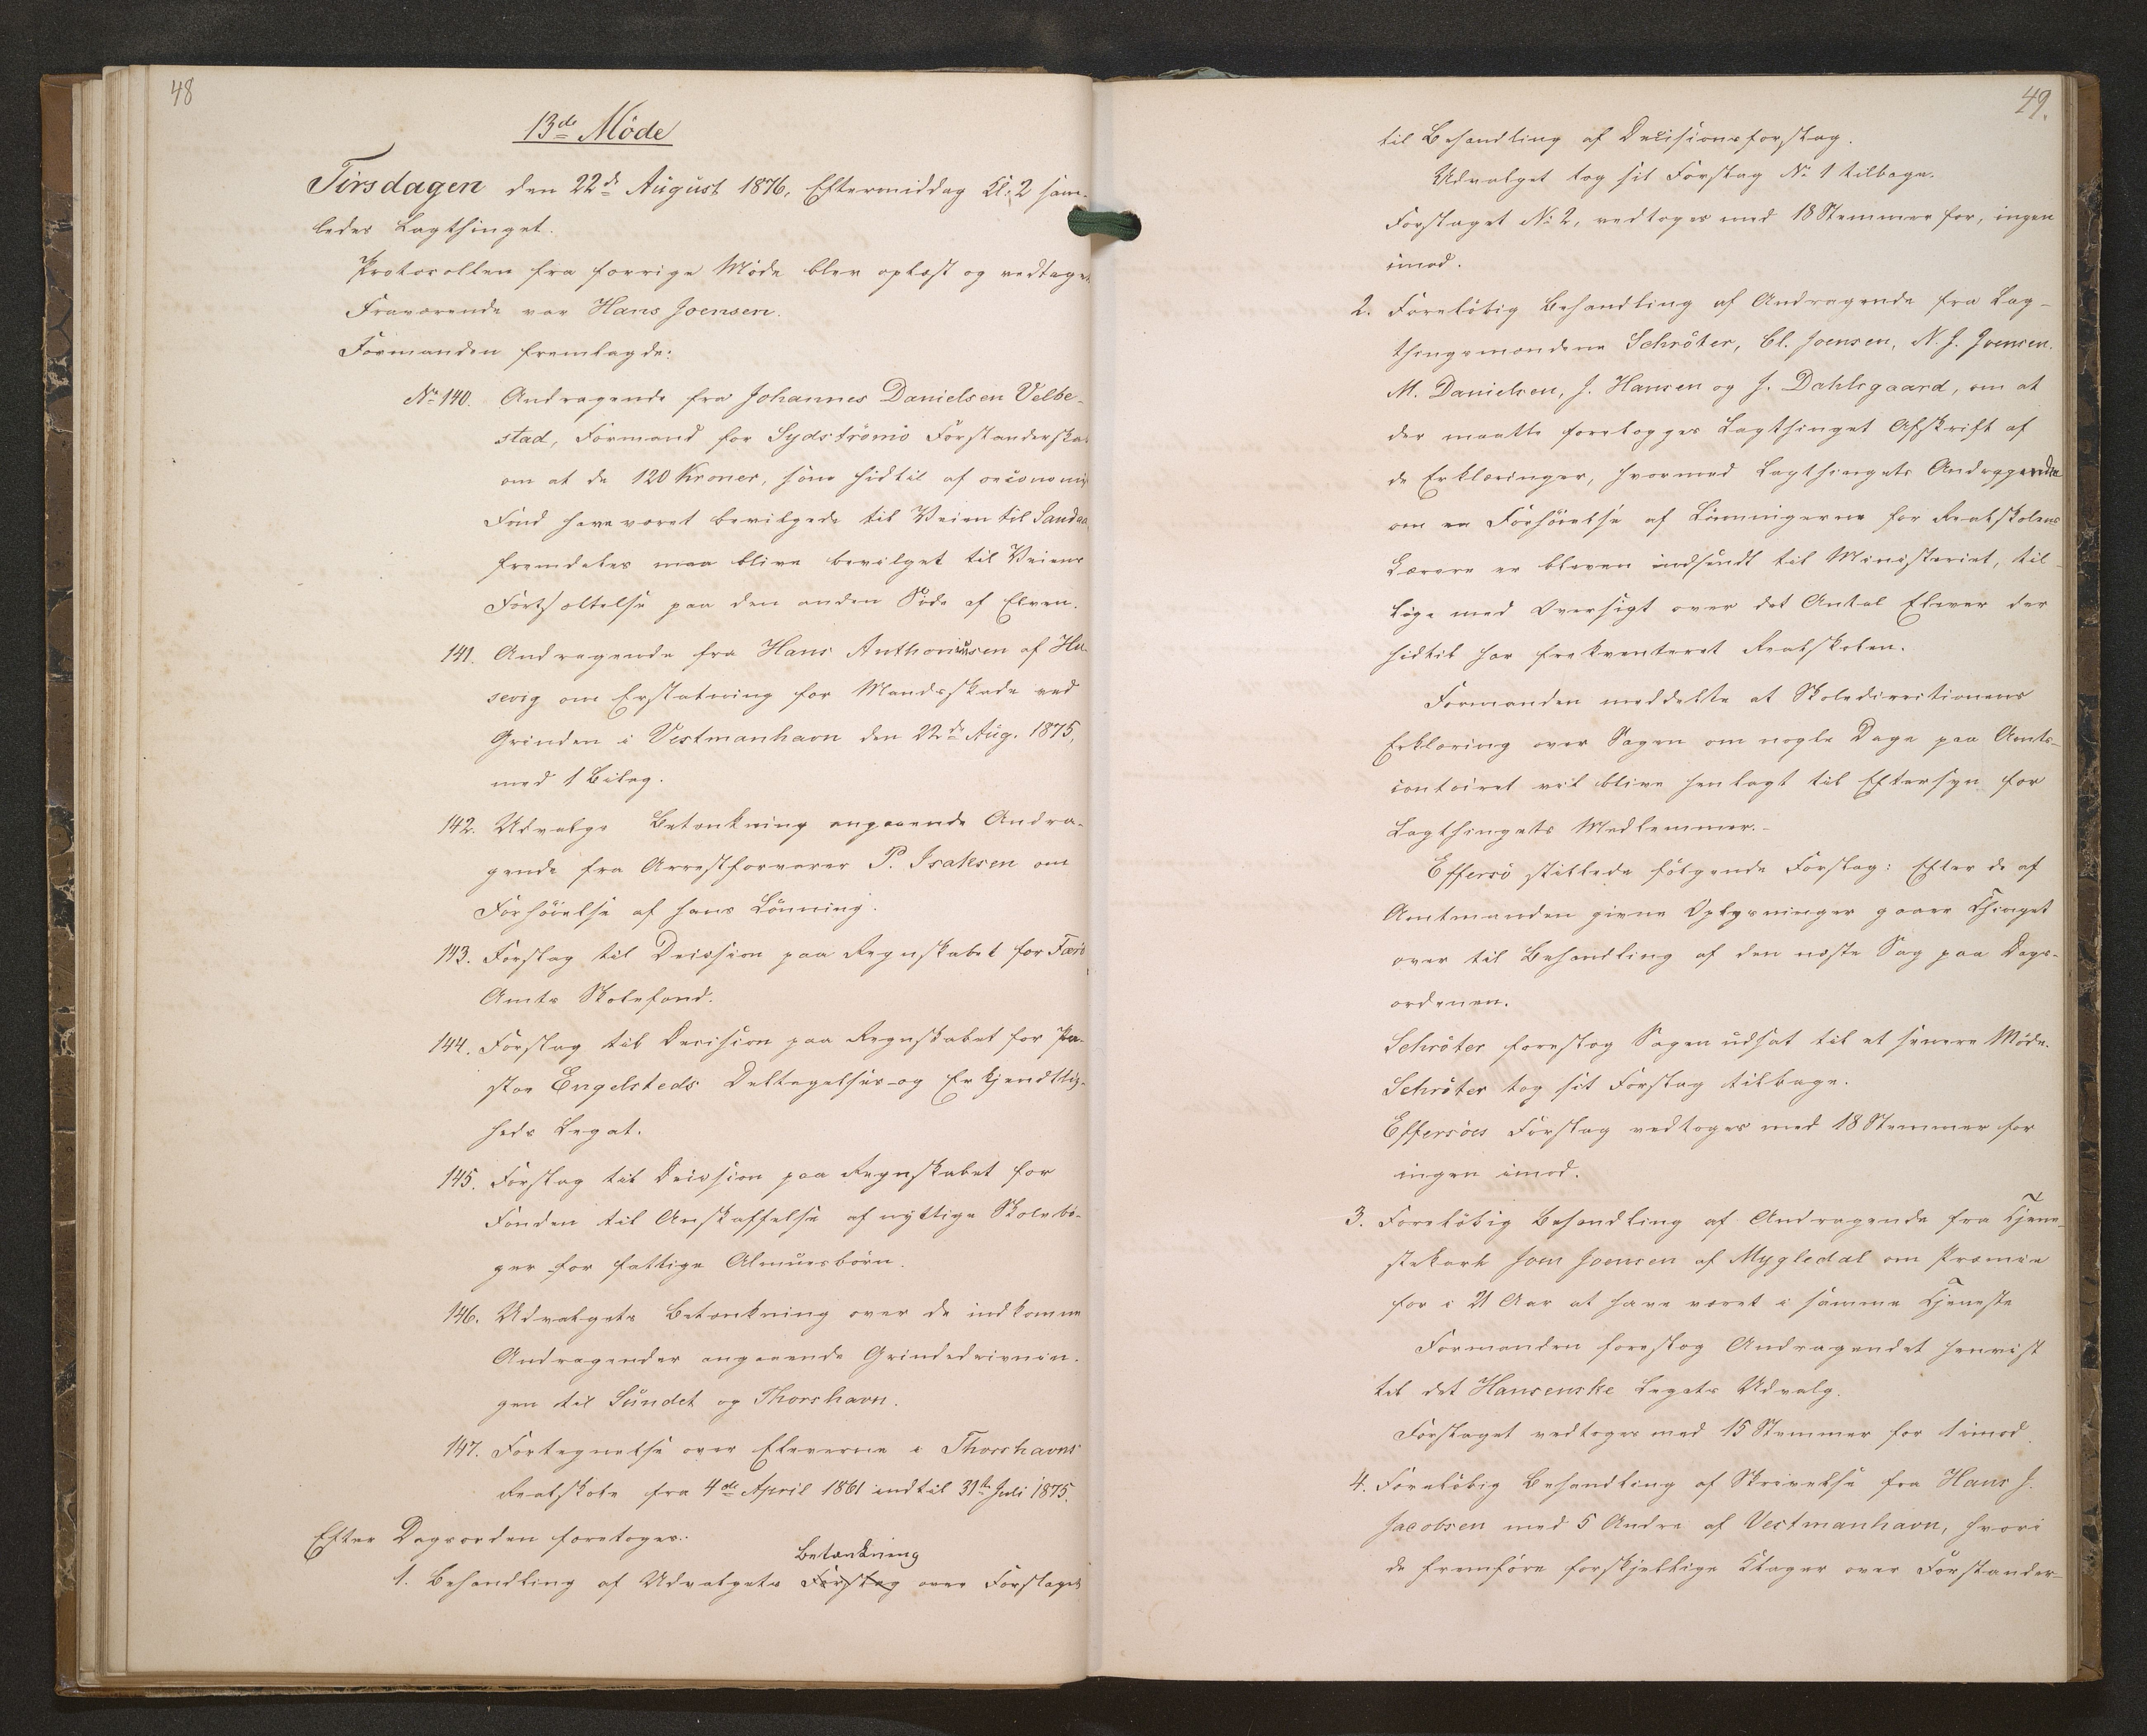 48
13de Möde
Tirsdagen den 22de August 1876, Eftermiddag Kl. 2 sam-
ledes Lagthinget.
Protocollen fra forrige Möde blev oplæst og vedtaget
Fraværende var Hans Joensen.
Formanden fremlagde:
No 140. Andragende fra Johannes Danielsen Velbe-
stad, Formand for Sydströmö Forstanderska
om at de 120 Kroner, som hidtil af oeconomis
Fond have været bevilgede til Veien til Sandaa
fremdeles maa blive bevilget til Veiens
Fortsættelse paa den anden Side af Elven.
141. Andragende fra Hans Anthoniusen af Hu-
sevig om Erstatning for Mandsskade ved
Grinden i Vestmanhavn den 22de Aug. 1875,
med 1 Bilag.
142. Udvalgs Betænkning angaaende Andra-
gende fra Arrestforvarer P. Isaksen om
Forhöielse af hans Lönning.
143. Forslag til Decision paa Regnskabet for Færö
Amts Skolefond.
144. Forslag til Decision paa Regnskabet for Pa-
stor Engelsteds Deltagelses- og Erkjendtlig-
heds Legat.
145. Forslag til Decision paa Regnskabet for
Fonden til Anskaffelse af nyttige Skolebö-
ger for fattige Almuesbörn.
146. Udvalgets Betænkning over de indkomne
Andragender angaaende Grindedrivnin-
gen til Sundet og Thorshavn.
147. Fortegnelse over Eleverne i Thorshavns
Realskole fra 4de April 1861 indtil 31te Juli 1875.
Efter Dagsorden foretoges:
Betænkning
1. Behandling af Udvalgets Forslag over Forslaget
49.
til Behandling af Decisionsforslag.
Udvalget tog sit Forslag No 1 tilbage.
Forslaget No 2, vedtoges med 18 Stemmer for, ingen
imod.
2. Forelöbig Behandling af Andragende fra Lag-
thingsmændene Schröter, Cl. Joensen, N. J. Joensen.
M. Danielsen, J. Hansen og J. Dahlsgaard, om at
der maatte forelægges Lagthinget Afskrift af
de Erklæringer, hvormed Lagthingets Andragende
om en Forhöielse af Lönningerne for Realskolens
Lærere er bleven indsendt til Ministeriet, til-
lige med Oversigt over det Antal Elever der
hidtil har frekventeret Realskolen.
Formanden meddelte at Skoledirectionens
Erklæring over Sagen om nogle Dage paa Amts-
contoiret vil blive henlagt til Eftersyn for
Lagthingets Medlemmer.-
Effersö stillede fölgende Forslag: Efter de af
Amtmanden givne Oplysninger gaaer Thinget
over til Behandling af den næste Sag paa Dags-
ordenen.
Schröter foreslog Sagen udsat til et senere Möde.
Schröter tog sit Forslag tilbage.
Effersöes Forslag vedtoges med 18 Stemmer for
ingen imod.
3. Forelöbig Behandling af Andragende fra Tjene-
stekarl Joen Joensen af Mygledal om Præmie
for i 21 Aar at have været i samme Tjeneste
Formanden foreslog Andragendet henvist
til det Hansenske Legats Udvalg.
Forslaget vedtoges med 15 Stemmer for 1 imod
4. Forelöbig Behandling af Skrivelse fra Hans J.
Jacobsen med 5 Andre af Vestmanhavn, hvori
de fremföre forskjellige Klager over Forstander-